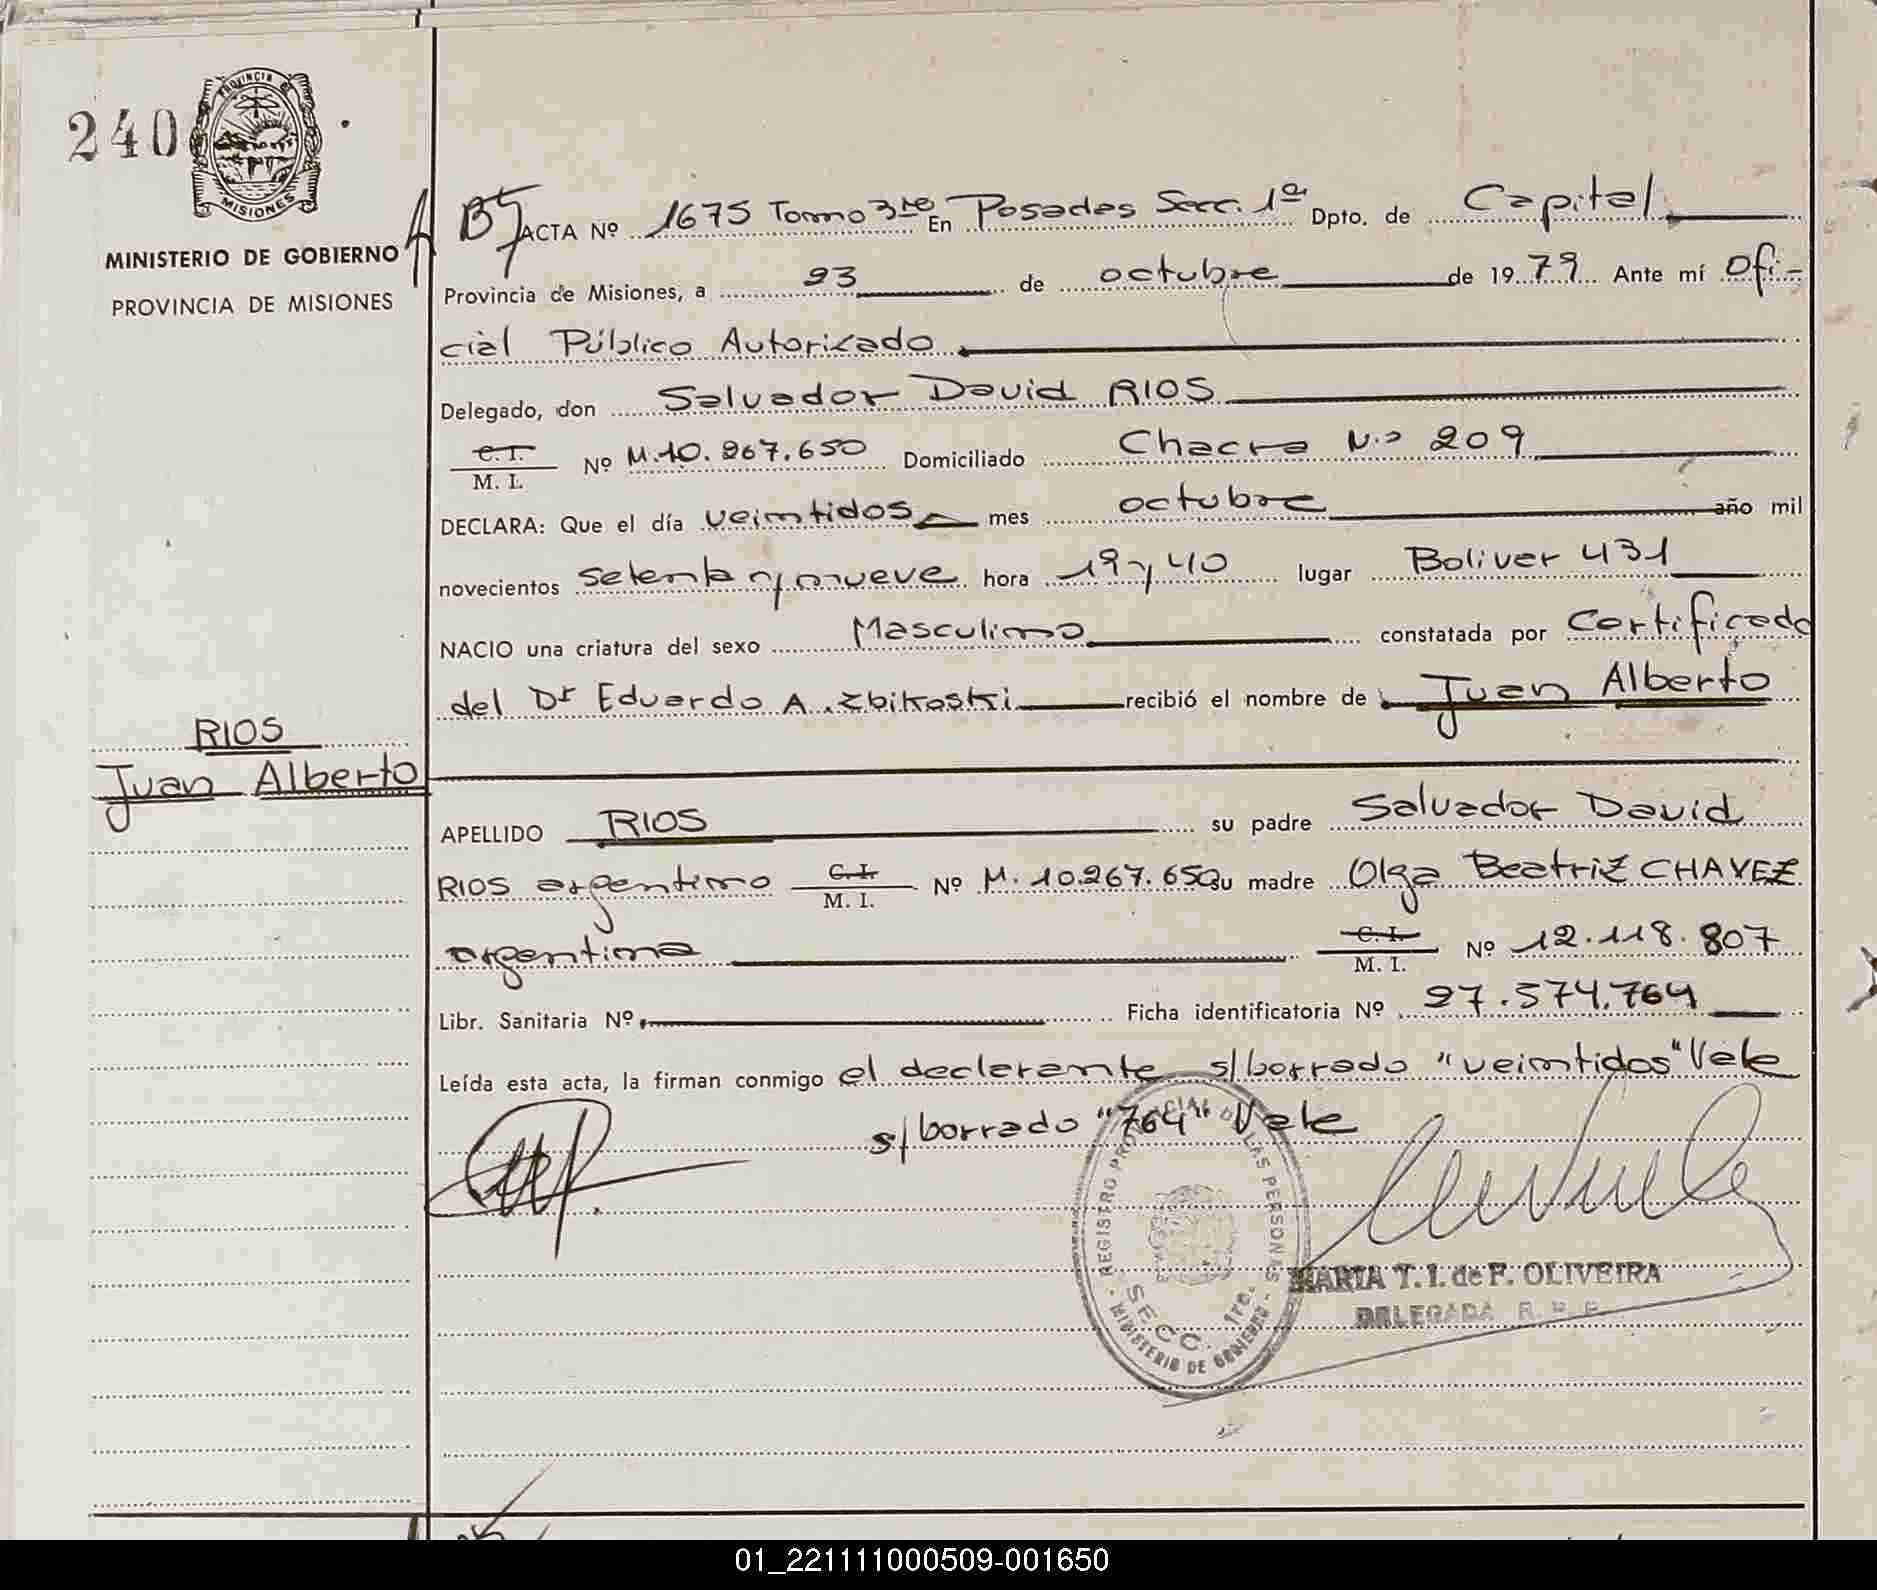 240
PROVINCIA DE
MISIONES
MINISTERIO DE GOBIERNO
PROVINCIA DE MISIONES
ACTA Nº 1675 Tomo 3ro En Posadas Secc. 1ª Dpto. de Capital
Provincia de Misiones, a 23 de octubre de 1979 Ante mí Ofi-
cial Público Autorizado
Delegado, don Salvador David RIOS
C. I.
M. I. Nº M.10.267.650 Domiciliado Chacra Nº 209
DECLARA: Que el día veintidos mes octubre año mil
novecientos setenta y nueve hora 19 y 40 lugar Bolivar 431
NACIO una criatura del sexo Masculino constatada por Certificado
del Dr Eduardo A. Zbikoski recibió el nombre de Juan Alberto
RIOS
Juan Alberto
APELLIDO RIOS su padre Salvador David
RIOS argentino C. I. M. I. Nº M. 10.267.650 su madre Olga Beatriz CHAVEZ
argentina C. I. M. I. Nº 12.118.807
Libr. Sanitaria Nº Ficha identificatoria Nº 27.574.764
Leída esta acta, la firman conmigo el declarante s/borrado "veintidos" Vale
s/borrado "764" Vale
REGISTRO PROVINCIAL DE LAS PERSONAS
SECC. 1ra.
MINISTERIO DE GOBIERNO
MARIA T. I. de F. OLIVEIRA
DELEGADA R. P. P.
01_221111000509-001650